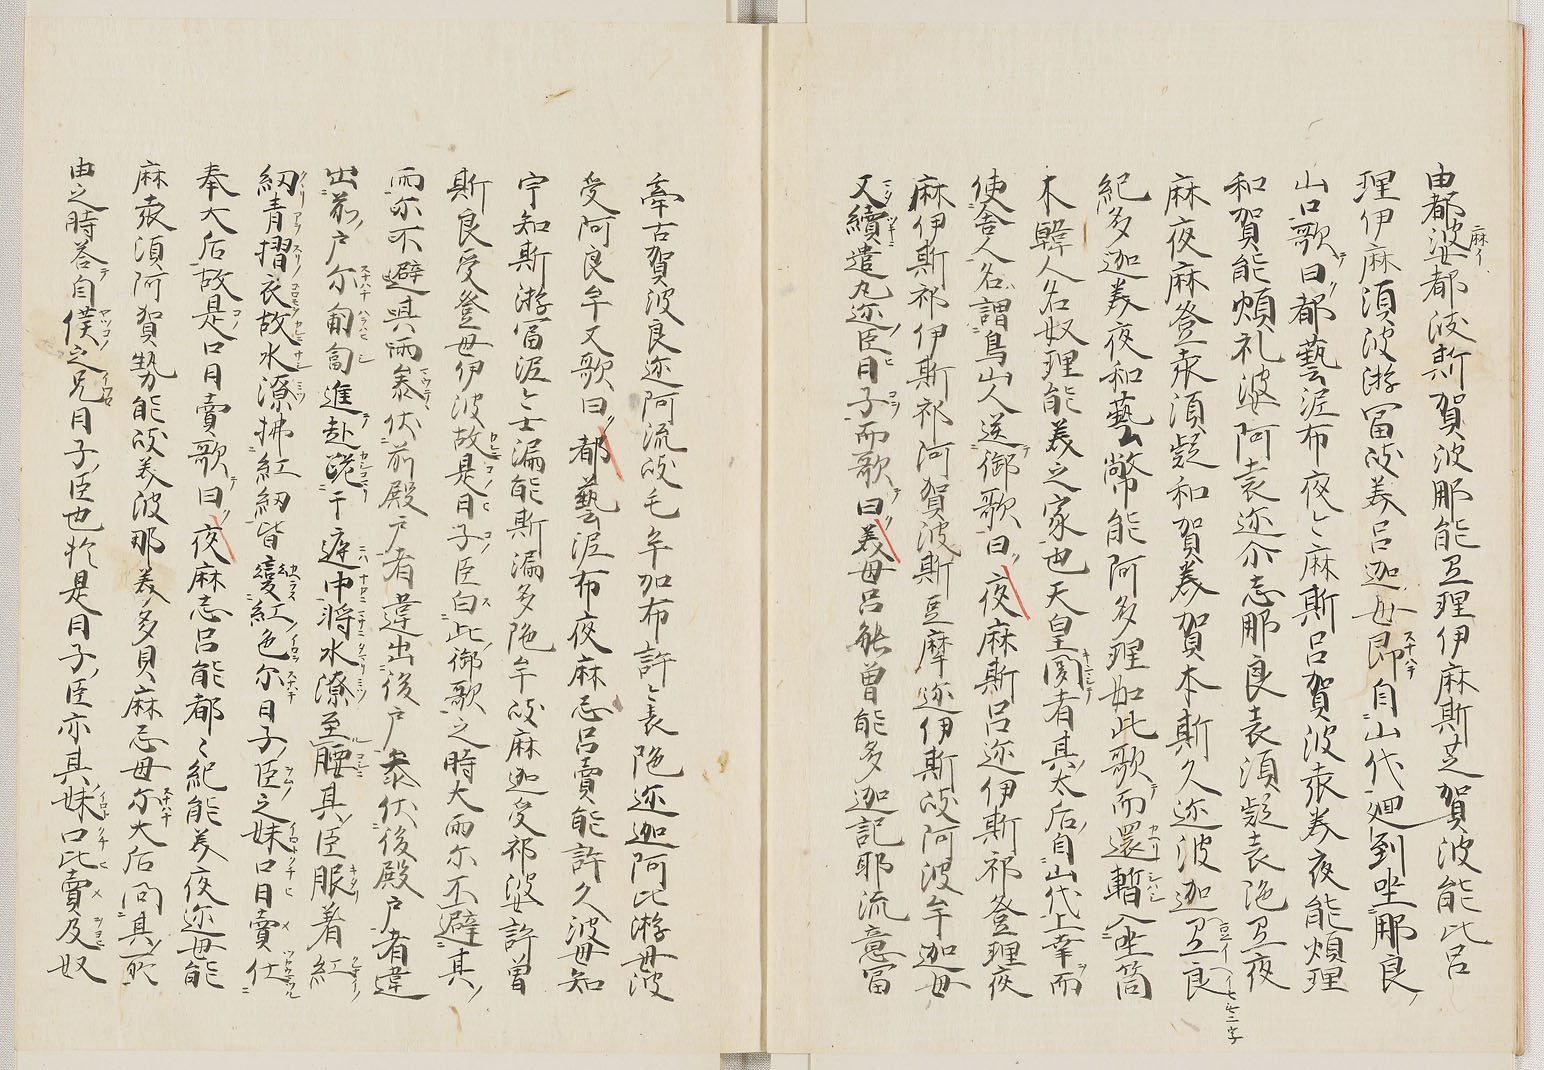 由都婆都波斯賀波那能弖理伊麻斯芝賀波能比呂
理伊麻須波游冨岐美呂迦母昂自山代廻到坐那良
山口歌曰都藝泥布夜々麻斯呂賀波袁美夜能煩理
和賀能煩礼婆阿袁迩余志那良袁須疑袁陁弖夜
麻夜麻登袁須疑和賀美賀本斯久迩波迦弖良
紀多迦美夜和藝幣能阿多理如此歌而還暫入坐筒
木韓人名奴理能美之家也天皇聞者其太后自山代上幸而
使舎人名謂鳥山人送御歌曰夜麻斯呂迩伊斯祁登理夜
麻伊斯祁伊斯祁阿賀波斯豆摩迩伊斯岐阿波牟迦母
又續遣丸迩臣口子而歌曰美母呂能曽能多迦記那流意冨
韋古賀波良迩阿流岐毛牟加布許々袁陁迩迦阿比游母波
受阿良牟又歌曰都藝泥布夜麻志呂賣能許久波母知
宇知斯游冨泥々士漏能斯漏多陁牟岐麻迦受祁婆許曽
斯良受登母伊波故是口子臣白此御歌之時大雨尓不避其
雨尓不避其雨参伏前殿戸者違出後戸参伏後殿戸者違
出前戸尓匍匐進赴跪于庭中将水潦至腰其臣服着紅
紐青摺衣故水潦拂紅紐皆變紅色尓口子臣之妹口日賣仕
奉大后故是口日賣歌曰夜麻志呂能都々紀能美夜迩母能
麻袁須阿賀勢能岐美波那美多具麻志母尓大后問其所
由之時答白僕之兄口子臣也於是口子臣亦其妹口比賣及奴